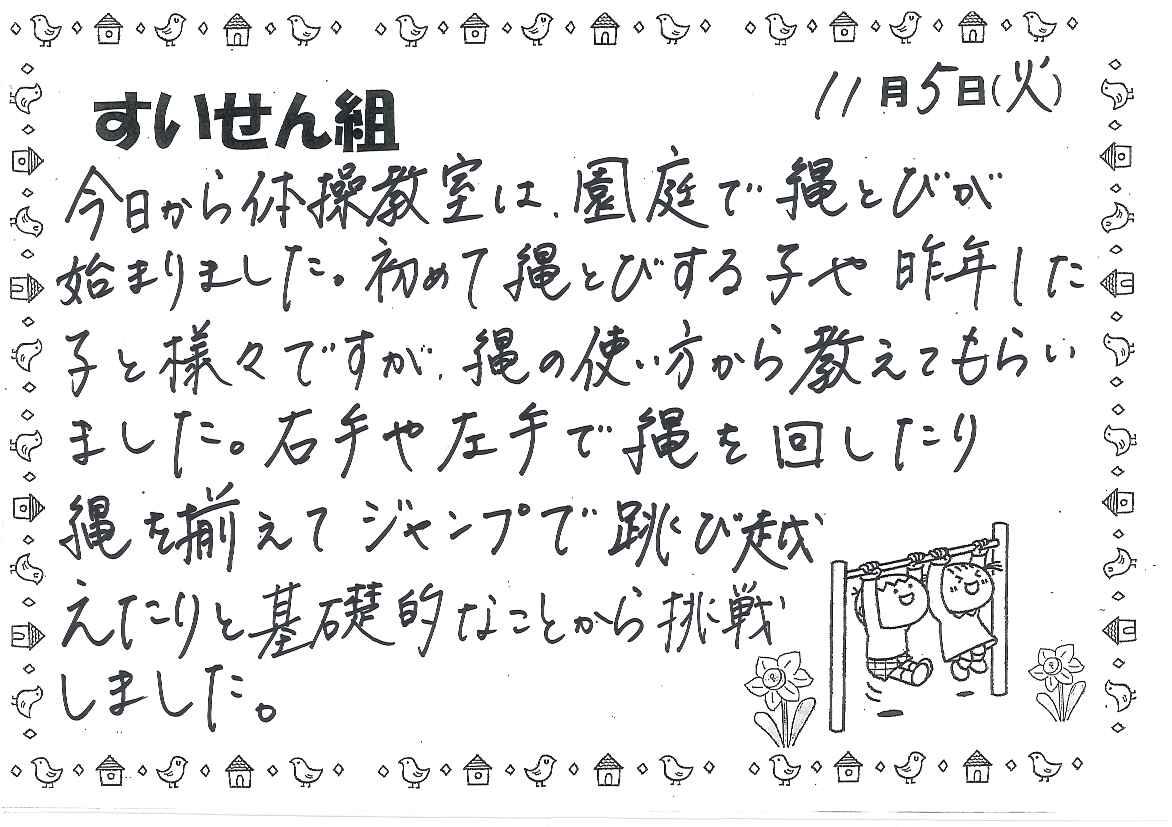 すいせん組
11月5日(火)
今日から体操教室は、園庭で縄とびが
始まりました。初めて縄とびする子や昨年した
子と様々ですが、縄の使い方から教えてもらい
ました。右手や左手で縄を回したり
縄を揃えてジャンプで跳び越
えたりと基礎的なことから挑戦
しました。